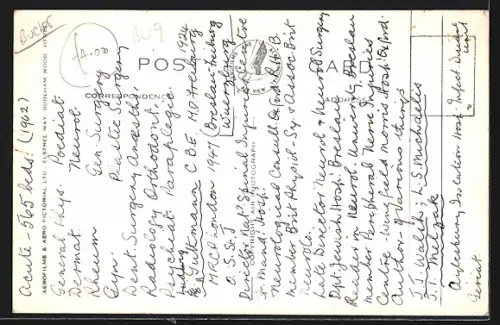 Bucks
£4.00
BU9
POST CARD
CORRESPONDENCE
ADDRESS
AEROFILMS & AERO PICTORIAL LTD. ELSTREE WAY, BOREHAM WOOD, HERTS
AEROFILMS AIR PHOTOGRAPH
AIR VIEW
Acute 565 beds. (1962)
General Phys. Paediat.
Dermat. Neurol.
Rheum Gen. Surgery
Gyn. Plastic Surgery
Dent. Surgery Anaesth.
Radiology Orthodont.
Psychiat. Paraplegics.
Ludwig Guttmann C.B.E. M.D. Freiburg 1924
MRCP London 1947 (Breslau, Freiburg
O. St. J. Wuerzburg)
Director Nat. Spinal Injuries Centre
Stoke Mandeville Hosp.
Neurological Consult. Oxford R.H.B.
Member Brit. Physiol. Sy. & Assoc. Brit
Neurols.
Late Director Neurol & Neurol Surgery
Dpt. Jewish Hosp. Breslau
Reader in Neurol. University Breslau
member Peripheral Nerve Injuries
Centre. Wingfield Morris Hosp. Oxford.
Author of various things
J. J. Walsh L. S. Michaelis
T. Melzak
Aylesbury Isolation Hosp. Infect. Disease
Geriat unit